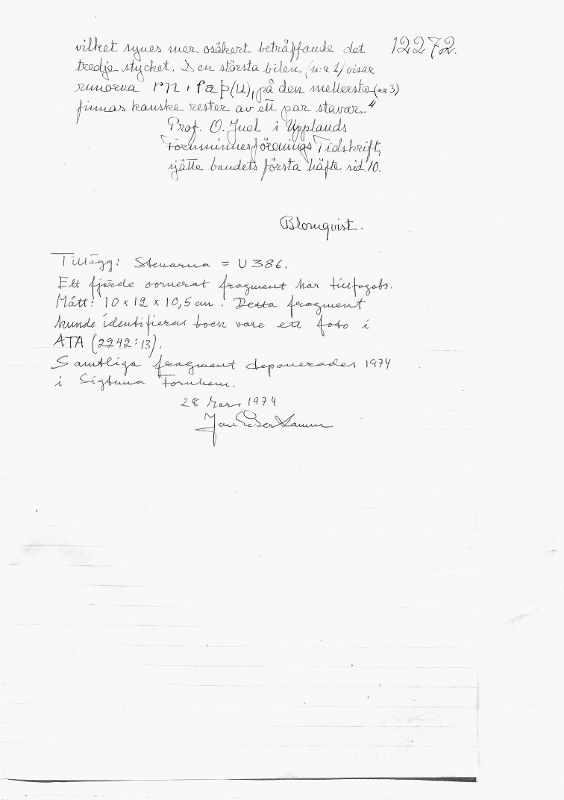 vilket synes mer osäkert beträffande det 12272.
tredje stycket. Den största biten (n:r 2) visar
runorna rn · fa þ (u), på den mellersta (n:r 3)
finnas kanske rester av ett par stavar."
Prof. O. Juel i Upplands
Fornminnesförenings Tidskrift,
sjätte bandets första häfte sid. 10.
Blomqvist.
Tillägg: Stenarna = U 386.
Ett fjärde oornerat fragment har tillfogats.
Mått: 10 x 12 x 10,5 cm. Detta fragment
kunde identifieras över ett foto i
ATA (2242:13).
Samtliga fragment deponerades 1974
i Sigtuna Fornhem.
28 mars 1974
Jan Peder Lamm